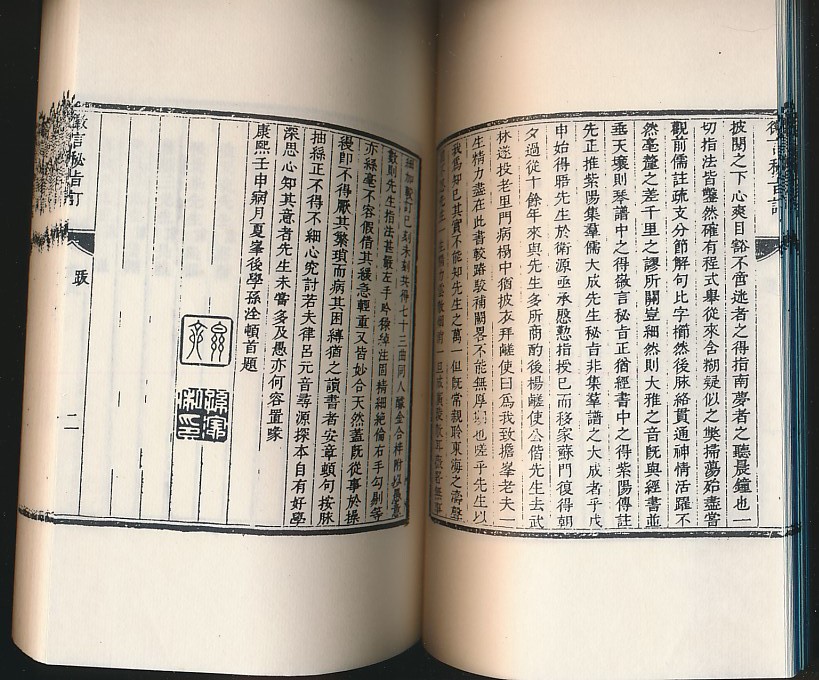 微言秘旨訂
披閱之下心爽目豁不啻迷者之得指南夢者之聽晨鐘也一
切指法皆鑿然確有程式舉從來含糊疑似之獘掃蕩殆盡當
觀前儒註疏文分節解句比字櫛然後脉絡貫通神情活躍不
然毫釐之差千里之謬所關豈細然則大雅之音旣與經書並
垂天壤則琴譜中之得㣲言秘旨正猶經書中之得紫陽傳註
先正推紫陽集羣儒大成先生秘旨非集羣譜之大成者乎戊
申始得晤先生於衛源亟承慇懃指授已而移家蘇門復得朝
夕過從十餘年來與先生多所商酌後楊鹺使公偕先生去武
林遂投老里門病榻中猶披衣拜鹺使曰爲我致擔峯老夫一
生精力盡在此書較路駮補闕畧不能無厚望也嗟乎先生以
我爲知己其實不能知先生之萬一但旣常親聆東海之濤聲
數則先生指法甚嚴左手吟猱綽注固精細絶倫右手勾剔等
亦絲毫不容假借其緩急輕重又皆妙合天然蓋旣從事於操
縵卽不得厭其繁瑣而病其困縛猶之讀書者安章頓句按脉
抽絲正不得不細心究討若夫律呂元音尋源探本自有好學
深思心知其意者先生未嘗多及愚亦何容置喙
康熙壬申病月夏峯後學孫洤頓首題
㣲言秘旨訂
跋
二